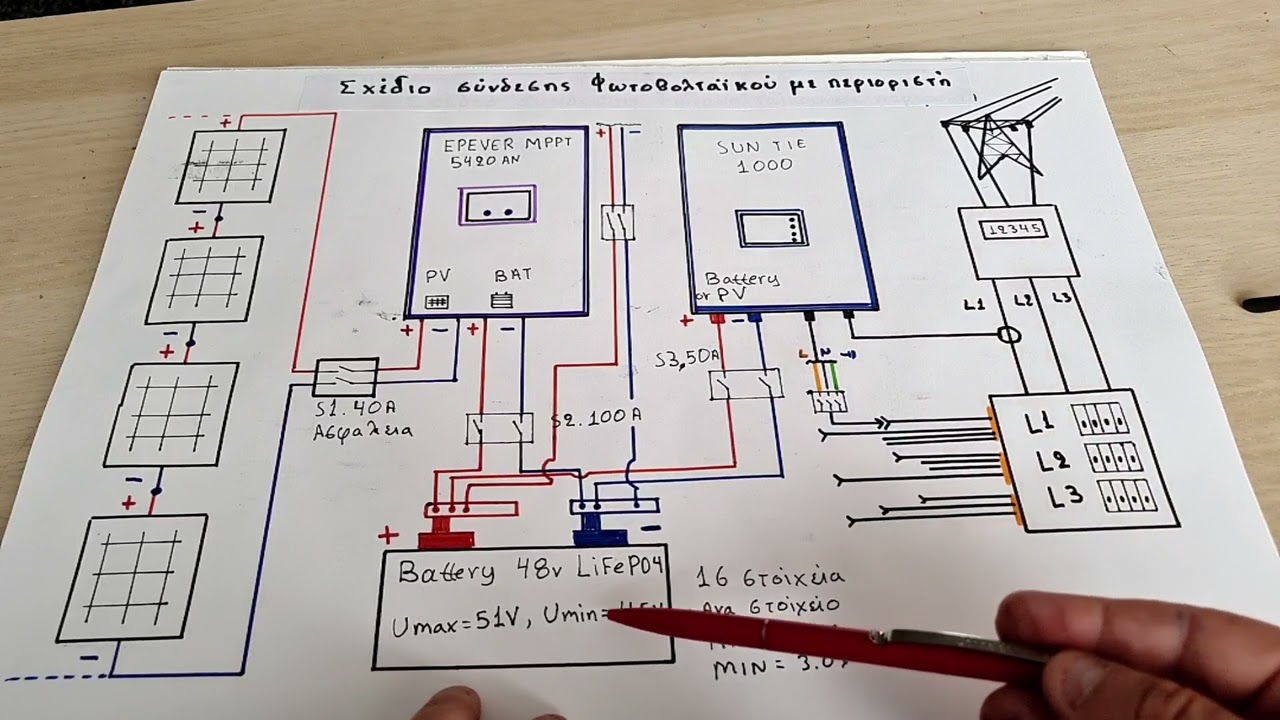 Σχέδιο σύνδεσης Φωτοβολταϊκού με περιοριστή
EPEVER MPPT
5420 AN
PV BAT
+ - + -
SUN TIE
1000
Battery
or PV
+ -
L N
12345
L1 L2 L3
S1.40A
Ασφαλεια
S2.100A
S3,50A
L1
L2
L3
+ -
Battery 48v LiFePO4
Umax=51V, Umin=
16 στοιχεία
Ανα στοιχείο
MIN = 3.0
+
-
+
-
+
-
+
-
+ -